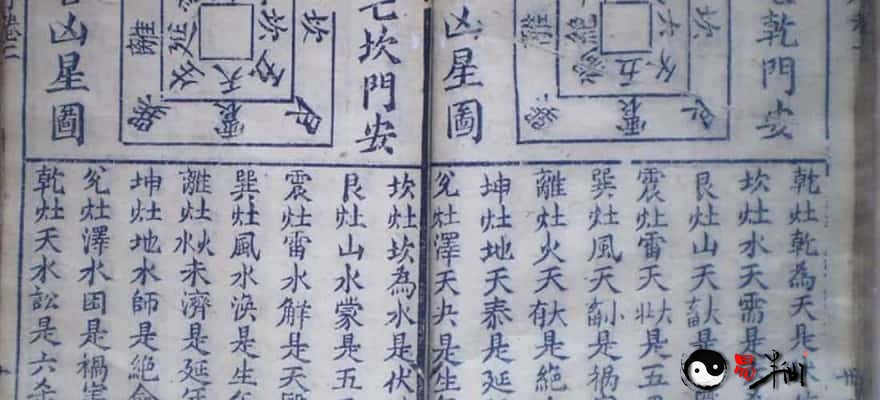 乾門安
震
凶星圖
乾灶乾為天是
坎灶水天需是
艮灶山天大畜是
震灶雷天大壯是五
巽灶風天小畜是禍
離灶火天大有是絕
坤灶地天泰是延
兌灶澤天夬是生
坎門安
坎
天
震
延
離
凶星圖
坎灶坎為水是伏
艮灶山水蒙是五
震灶雷水解是天
巽灶風水渙是生
離灶火水未濟是延
坤灶地水師是絕
兌灶澤水困是禍
乾灶天水訟是六